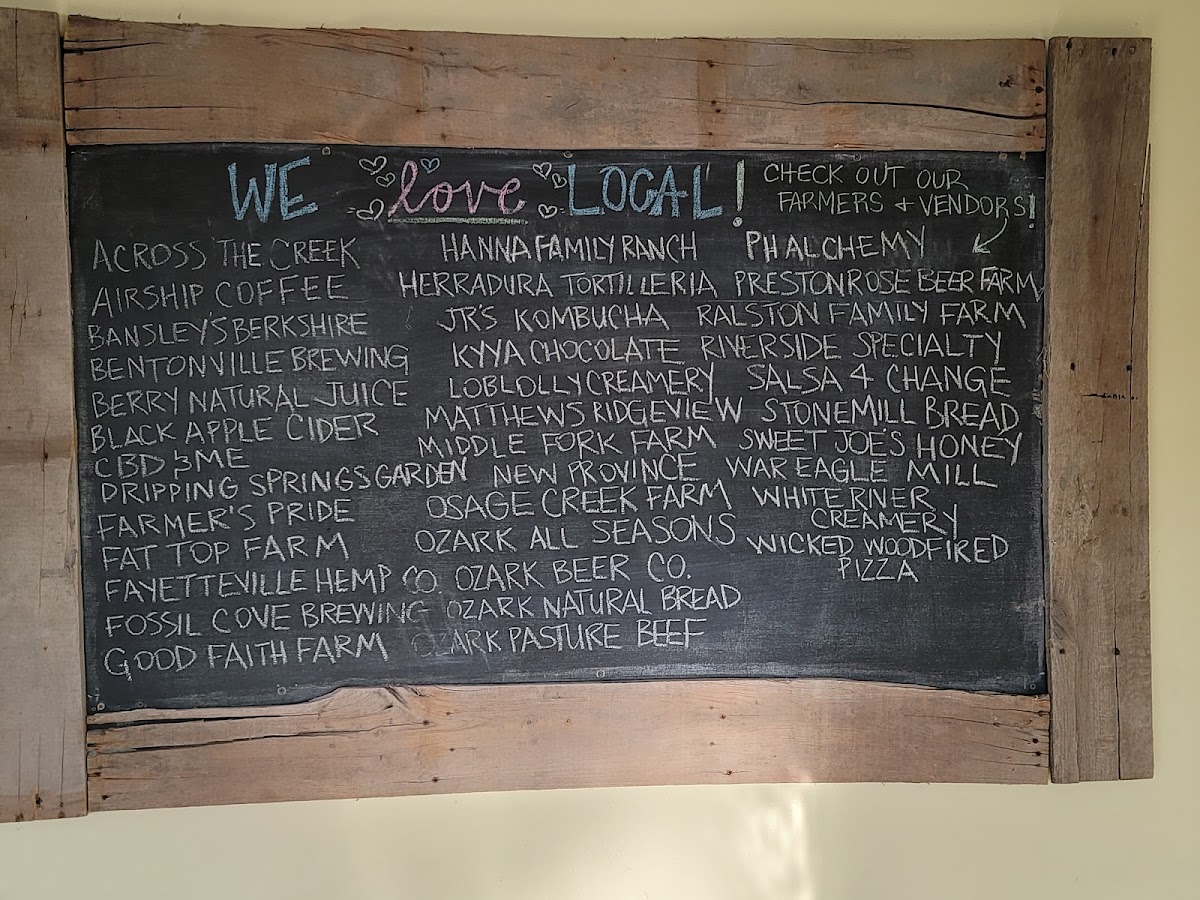 WE love LOCAL!
CHECK OUT OUR
FARMERS + VENDORS!
ACROSS THE CREEK
AIRSHIP COFFEE
BANSLEY'S BERKSHIRE
BENTONVILLE BREWING
BERRY NATURAL JUICE
BLACK APPLE CIDER
CBD & ME
DRIPPING SPRINGS GARDEN
FARMER'S PRIDE
FAT TOP FARM
FAYETTEVILLE HEMP CO.
FOSSIL COVE BREWING
GOOD FAITH FARM
HANNA FAMILY RANCH
HERRADURA TORTILLERIA
JR'S KOMBUCHA
KYYA CHOCOLATE
LOBLOLLY CREAMERY
MATTHEWS RIDGEVIEW
MIDDLE FORK FARM
NEW PROVINCE
OSAGE CREEK FARM
OZARK ALL SEASONS
OZARK BEER CO.
OZARK NATURAL BREAD
OZARK PASTURE BEEF
PH ALCHEMY
PRESTON ROSE BEER FARM
RALSTON FAMILY FARM
RIVERSIDE SPECIALTY
SALSA 4 CHANGE
STONEMILL BREAD
SWEET JOE'S HONEY
WAR EAGLE MILL
WHITE RIVER
CREAMERY
WICKED WOODFIRED
PIZZA